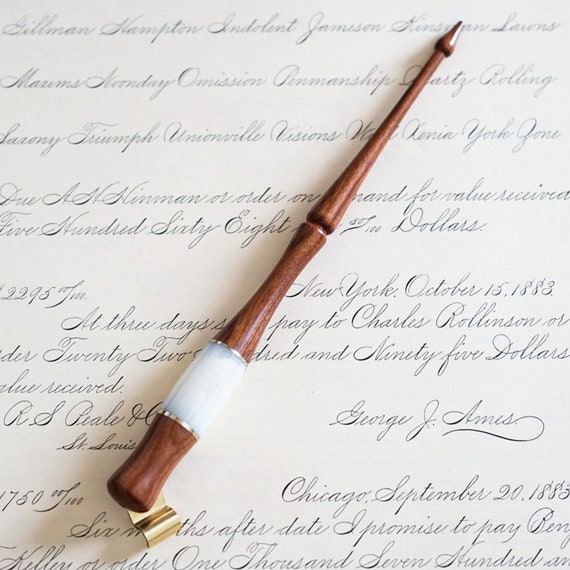 Gillman Hampton Indolent Jameson Kinsman Lawns
Maxims Noonday Omission Penmanship Quartz Rolling
Saxony Triumph Unionville Visions Xenia York Zone
Due A. H. Hinman or order on mand for value received
Five Hundred Sixty Eight 50/100 Dollars.
$2295 00/100. New York, October 15, 1883.
At three days s pay to Charles Rollinson or
order Twenty Two dred and Ninety five Dollars
value received.
R. S. Peale & Co George J. Ames.
St. Louis
1750 00/100 Chicago, September 20, 1883
Six ths after date I promise to pay Ben
Kelley or order One Thousand Seven Hundred and